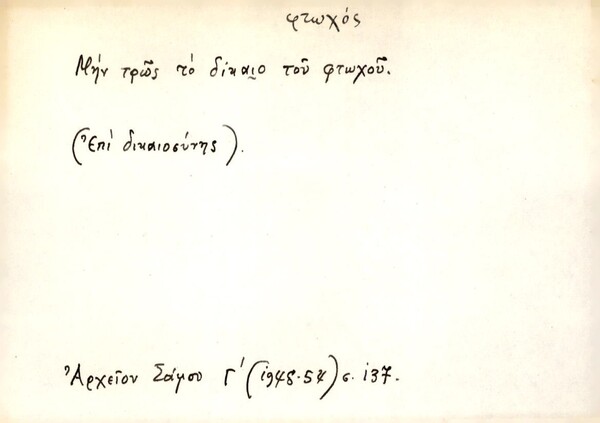 φτωχός
Μήν τρῶς τό δίκαιο τοῦ φτωχοῦ.
(Ἐπί δικαιοσύνης).
Ἀρχεῖον Σάμου Γ' (1948-54) σ. 137.